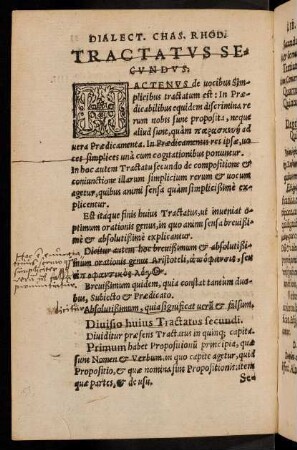 DIALECT. CHAS. RHOD.
TRACTATVS SE-
CVNDVS.
HACTENVS de vocibus sim-
plicibus tractatum est: In Præ-
dicabilibus equidem discrimina re-
rum nobis sunt proposita, neque
aliud sunt, quàm παρασκευὴ ad
vera Prædicamenta. In Prædicamentis res ipsæ, vo-
ces simplices unà cum cogitationibus ponuntur.
In hoc autem Tractatu secundo de compositione &
coniunctione illarum simplicium rerum & vocum
agetur, quibus animi sensa quàm simplicissimè ex-
plicentur.
Est itaque finis huius Tractatus, ut inveniat o-
ptimum orationis genus, in quo animi sensa brevissi-
mè & absolutissimè explicantur.
Dicitur autem hoc brevissimum & absolutis-
simum orationis genus Aristoteli, ἀπόφανσις, seu
ἀποφαντικὸς λόγος.
Brevissimum quidem, quia constat tantùm duo-
bus, Subiecto & Prædicato.
dicitur
Absolutissimum, quia significat verũ & falsum.
Divisio huius Tractatus secundi.
Dividitur præsens Tractatus in quinq; capita.
Primum habet Propositionũ principia, quæ
sunt Nomen & Verbum, in quo capite agetur, quid
Propositio, & quæ nomina sunt Propositionis: item
quæ partes, & de usu.
Se-